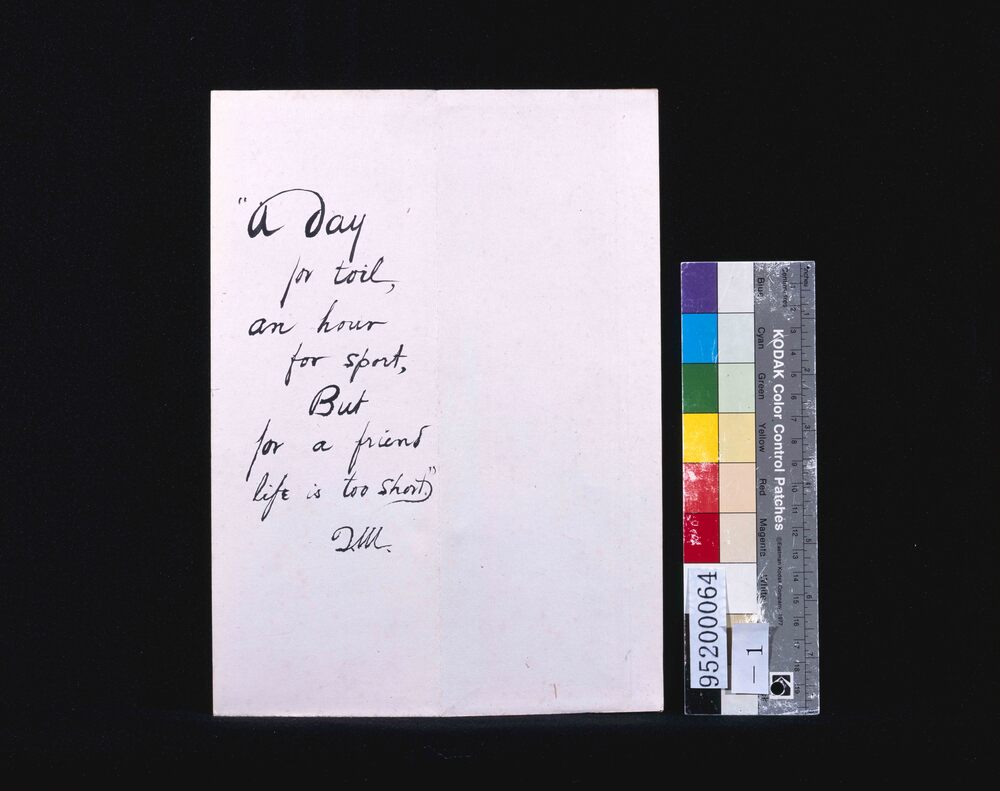 "A Day
for toil,
an hour
for sport,
But
for a friend
life is too short."
KODAK Color Control Patches
©Eastman Kodak Company, 1977
Inches
Centimetres
Blue
Cyan
Green
Yellow
Red
Magenta
White
1 2 3 4 5 6 7 8 9 10 11 12 13 14 15 16 17 18 19
1 2 3 4 5 6 7
95200064
1 —